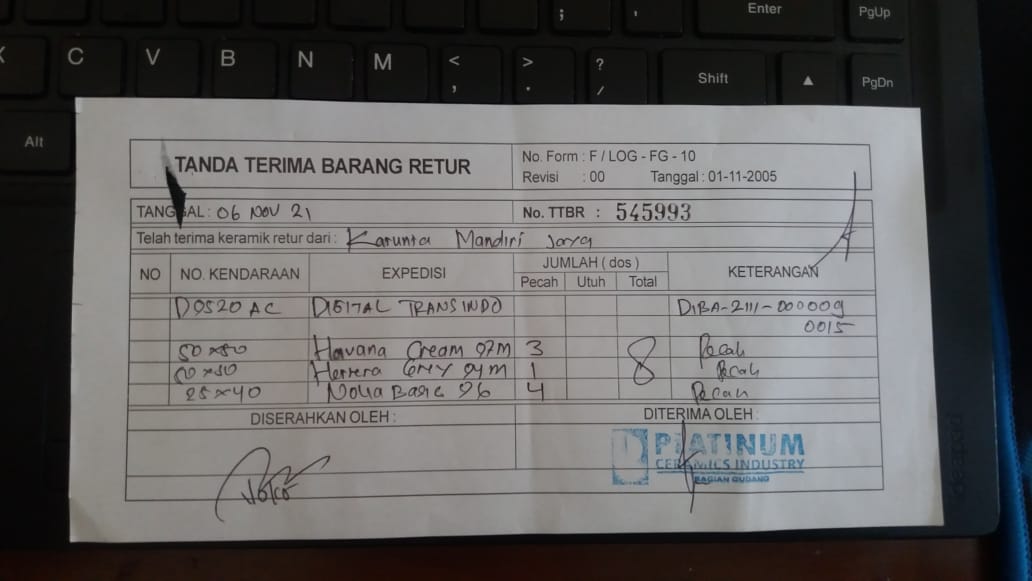 ; '
Enter
PgUp
X C V B N M < , > . ? / Shift ▲ PgDn
Alt
TANDA TERIMA BARANG RETUR
No. Form : F / LOG - FG - 10
Revisi : 00 Tanggal : 01-11-2005
TANGGAL : 06 NOV 21
No. TTBR : 545993
Telah terima keramik retur dari : Karunia Mandiri Jaya
NO NO. KENDARAAN EXPEDISI JUMLAH ( dos ) KETERANGAN
Pecah Utuh Total
D 9520 AC DIGITAL TRANSINDO DIBA-2111-000009
0015
50x50 Havana Cream 97M 3 8 Pecah
50x50 Herrera Grey 94M 1 Pecah
25x40 96 4 Pecah
DISERAHKAN OLEH : DITERIMA OLEH :
PLATINUM
CERAMICS INDUSTRY
BAGIAN GUDANG